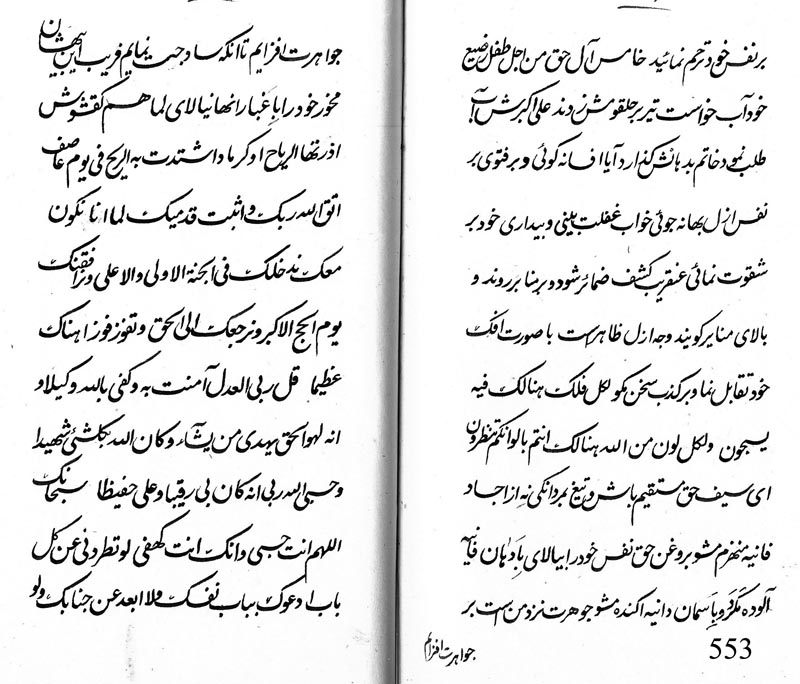 بر نفس خود ترحم نمائید خامس آل حق من اجل طفل رضیع
خود آب خواست تیر بر حلقومش زدند علی اکبرش آب
طلب نمود خاتم بدهانش گذارد آیا افسانه گوئی و بر فتوی بر
نفس ازل بهانه جوئی خواب غفلت بینی و بیداری خود بر
شقوت نمائی عنقریب کشف ضمائر شود و بر منابر روند و
بالای منابر گویند وجه ازل ظاهر است با صورت افک
خود تقابل نما و بر کذب سخن مگو لکل فلک هنالک فیه
یسبحون ولکل لون من الله هنالک انتم بالوانکم تنظرون
ای سیف حق مستقیم باش و تیغ بمردانگی نه از اجساد
فانیه منهزم مشو بر وغن حق نفس خود را بیالای بادهان فانیه
آلوده مگرد و باسمان دانیه اکنده مشو جوهرت نزد من است بر
553
جواهرت افزایم
جواهرت افزایم تا آنکه ساذجیت نمایم فریب این بیهشان
مخور خود را با غبار انها نیالای لما هم کقشوش
اذرتها الریاح او کرماد اشتدت به الریح فی یوم عاصف
اتق الله ربک و اثبت قدمیک لما انا نکون
معک ندخلک فی الجنة الاولی والاعلی و نرافقنک
یوم الحج الاکبر و نرجعک الی الحق و تفوز فوزا هناک
عظیما قل ربی العدل آمنت به و کفی بالله وکیلا و
انه لهو الحق یهدی من یشآء و کان الله بکلشئ شهیدا
و حسبی الله ربی انه کان بی رقیبا و علی حفیظا سبحانک
اللهم انت حسبی و انک انت کهفی لو تطردنی عن کل
باب ادعوک بباب نفسک ولا ابعد عن جنابک ولو